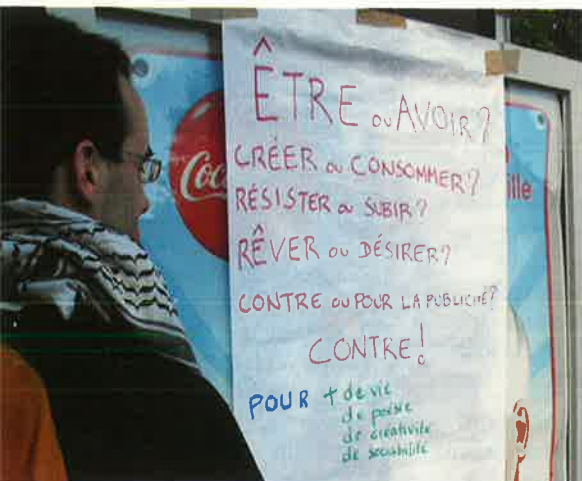 ÊTRE ou AVOIR ?
CRÉER ou CONSOMMER ?
RÉSISTER ou SUBIR ?
RÊVER ou DÉSIRER ?
CONTRE ou POUR LA PUBLICITÉ ?
CONTRE !
POUR + de vie
de poésie
de créativité
de sociabilité
Coc
ille